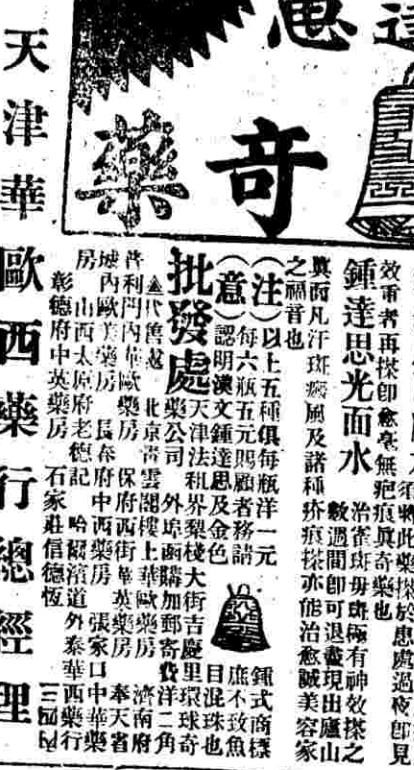 奇藥
效重者再搽卽愈毫無疤痕眞奇藥也
鍾達思光面水
治雀斑毋斑極有神效搽之
數過間卽可退盡現出廬山
眞面凡汗斑癜風及諸種疥痕搽亦能治愈誠美容家
之福音也
（注）以上五種俱每瓶洋一元
（意）每六瓶五元賜顧者務請
認明漢文鍾達思及金色
鍾式商標
庶不致魚
目混珠也
批發處
天津法租界梨棧大街吉慶里環球奇
藥公司 外埠函購加郵寄費洋二角
北京青雲閣樓上華歐藥房 濟南府
普利門內華歐藥房 保府西街華英藥房 奉天省
城內歐美藥房 長春府中西藥房 張家口中華藥
房 山西太原府老德記 哈爾濱道外泰華西藥行
彰德府中英藥房 石家莊信德恆
天津華
歐西藥行總經理